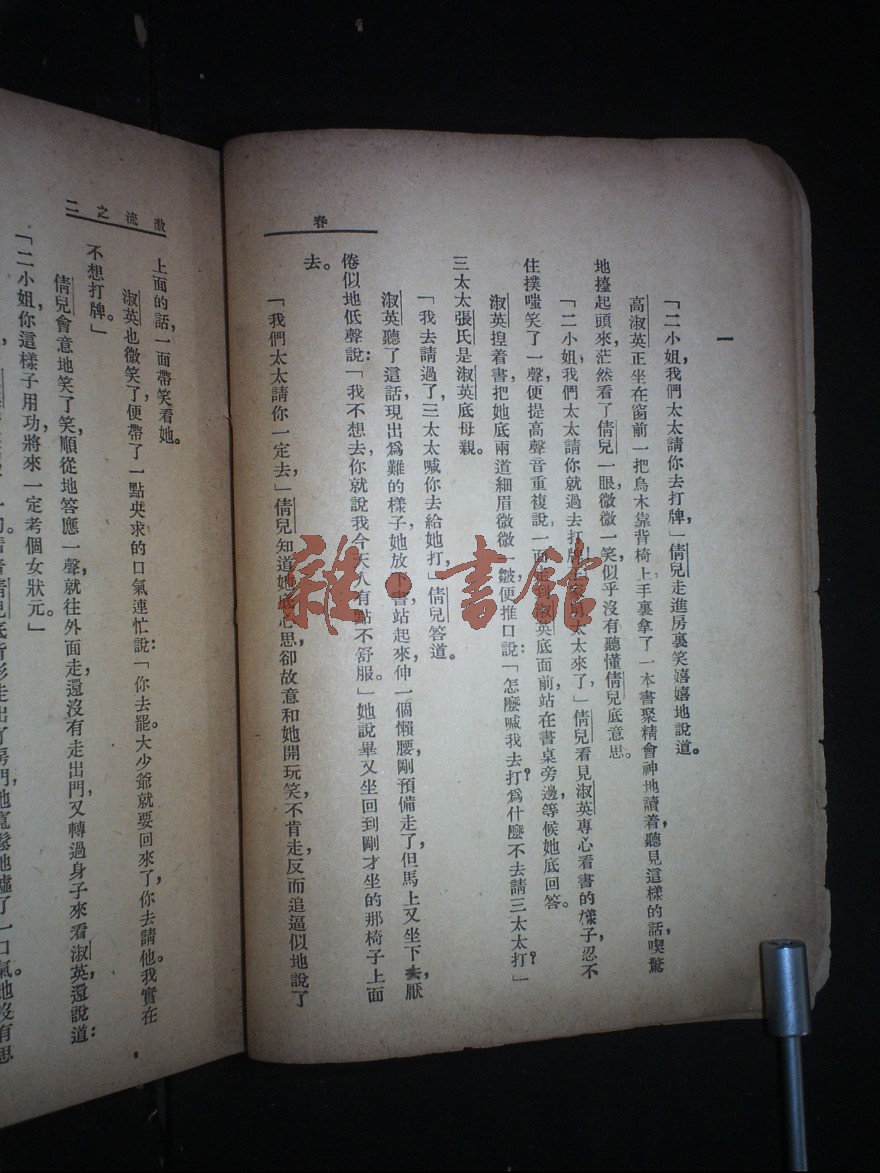 春
一
「二小姐，我們太太請你去打牌，」倩兒走進房裏笑嘻嘻地說道。
高淑英正坐在窗前一把烏木靠背椅上，手裏拿了一本書聚精會神地讀着，聽見這樣的話，喫驚
地擡起頭來茫然看了倩兒一眼，微微一笑，似乎沒有聽懂倩兒底意思。
「二小姐，我們太太請你就過去打牌，太太來了，」倩兒看見淑英專心看書的樣子，忍不
住撲嗤笑了一聲，便提高聲音重複說，一面走到淑英底面前，站在書桌旁邊，等候她底回答。
淑英捏着書，把她底兩道細眉微微一皺，便推口說：「怎麼喊我去打？爲什麼不去請三太太打？」
三太太張氏是淑英底母親。
「我去請過了，三太太喊你去給她打，」倩兒答道。
淑英聽了這話，現出爲難的樣子，她放下書站起來，伸一個懶腰，剛預備走了，但馬上又坐下去，厭
倦似地低聲說：「我不想去，你就說我今天人有點不舒服。」她說畢又坐回到剛才坐的那椅子上面
去。
「我們太太請你一定去，」倩兒知道她底心思，卻故意和她開玩笑，不肯走，反而追逼似地說了
激流之二
上面的話，一面帶笑看她。
淑英也微笑了，便帶了一點央求的口氣連忙說：「你去罷。大少爺就要回來了，你去請他。我實在
不想打牌。」
倩兒會意地笑了笑，順從地答應一聲，就往外面走，還沒有走出門，又轉過身子來看淑英，還說道：
「二小姐，你這樣子用功，將來一定考個女狀元。」
倩兒底背影走出了房門，她寬鬆地噓了一口氣。她沒有思
雜·書館